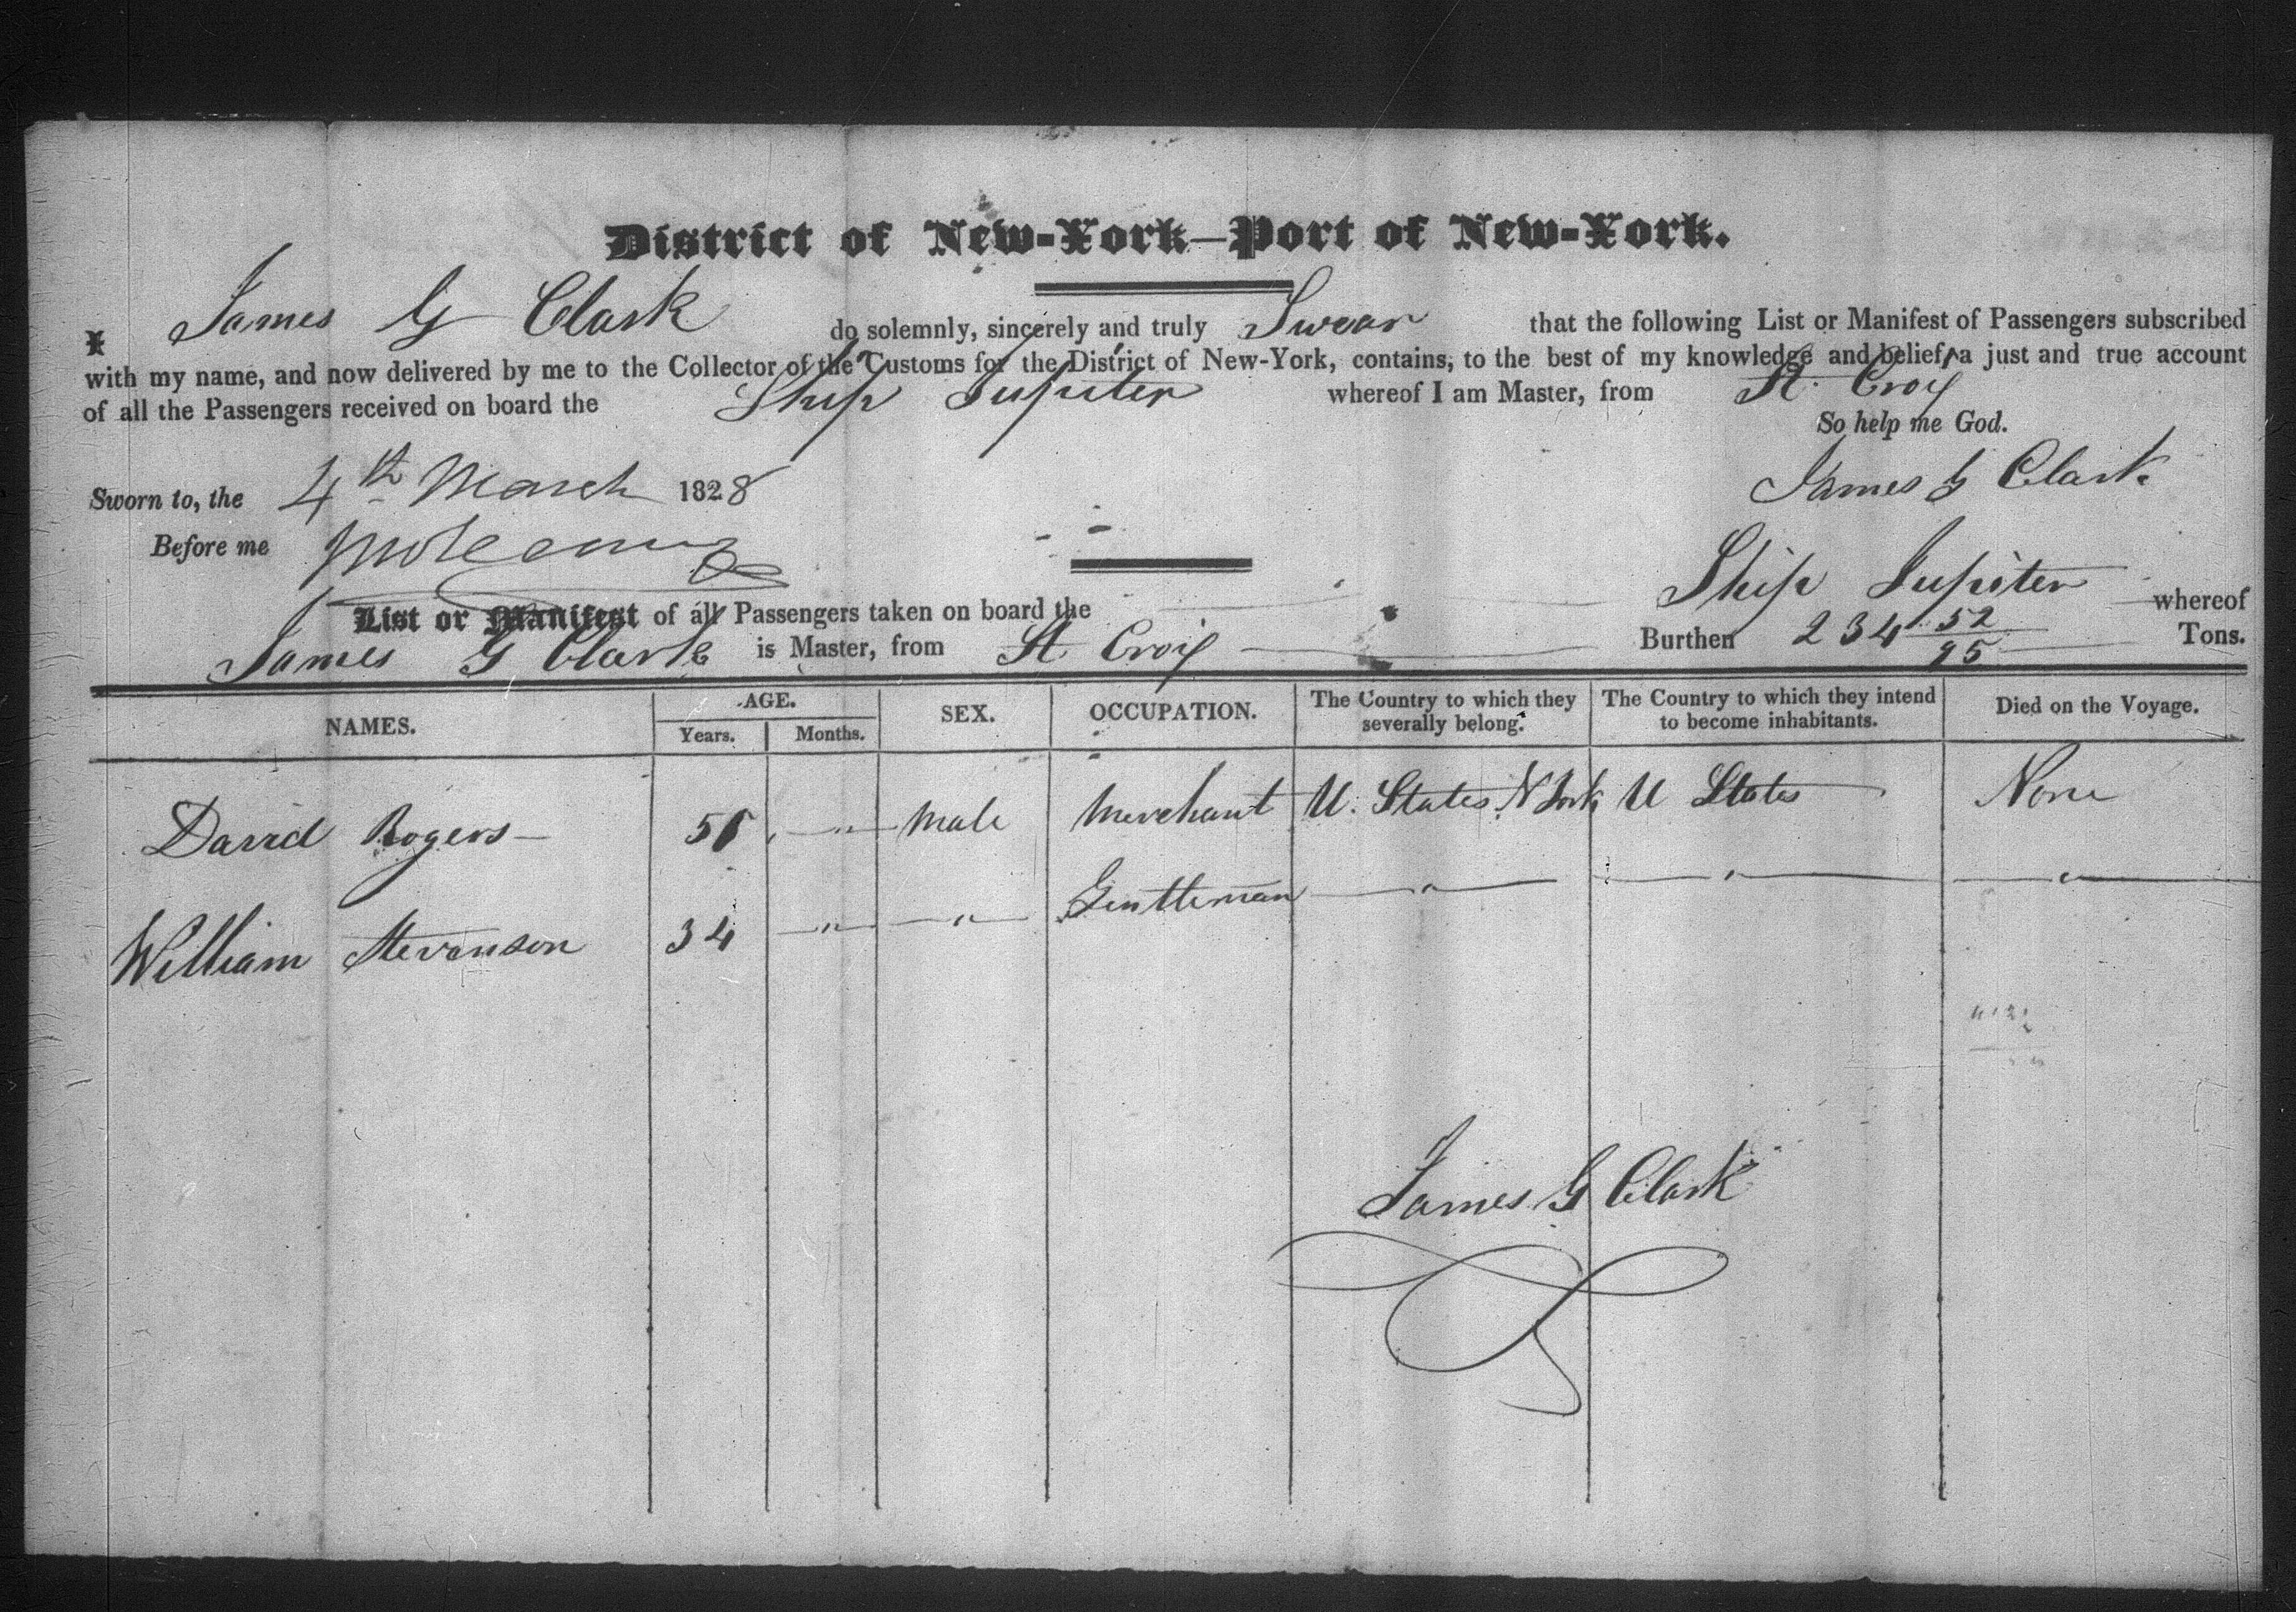 District of New-York—Port of New-York.
I James G Clark do solemnly, sincerely and truly Swear that the following List or Manifest of Passengers subscribed
with my name, and now delivered by me to the Collector of the Customs for the District of New-York, contains, to the best of my knowledge and belief, a just and true account
of all the Passengers received on board the Ship Jupiter whereof I am Master, from St. Croix
So help me God.
Sworn to, the 4th March 1828 James G Clark
Before me
List or Manifest of all Passengers taken on board the Ship Jupiter whereof
James G Clark is Master, from St Croix Burthen 234 52/95 Tons.
NAMES. AGE. Years. Months. SEX. OCCUPATION. The Country to which they severally belong. The Country to which they intend to become inhabitants. Died on the Voyage.
David Rogers — " — male Merchant U. States N York U States None
William Stevenson 34 — " — — " — Gentleman — " — — " — — " —
James G Clark